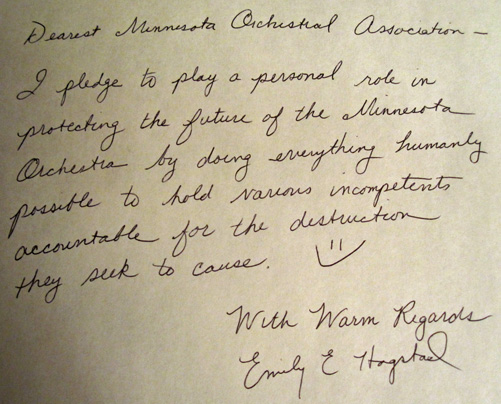 Dearest Minnesota Orchestral Association –
I pledge to play a personal role in
protecting the future of the Minnesota
Orchestra by doing everything humanly
possible to hold various incompetents
accountable for the destruction
they seek to cause.
With Warm Regards
Emily E Hogstad